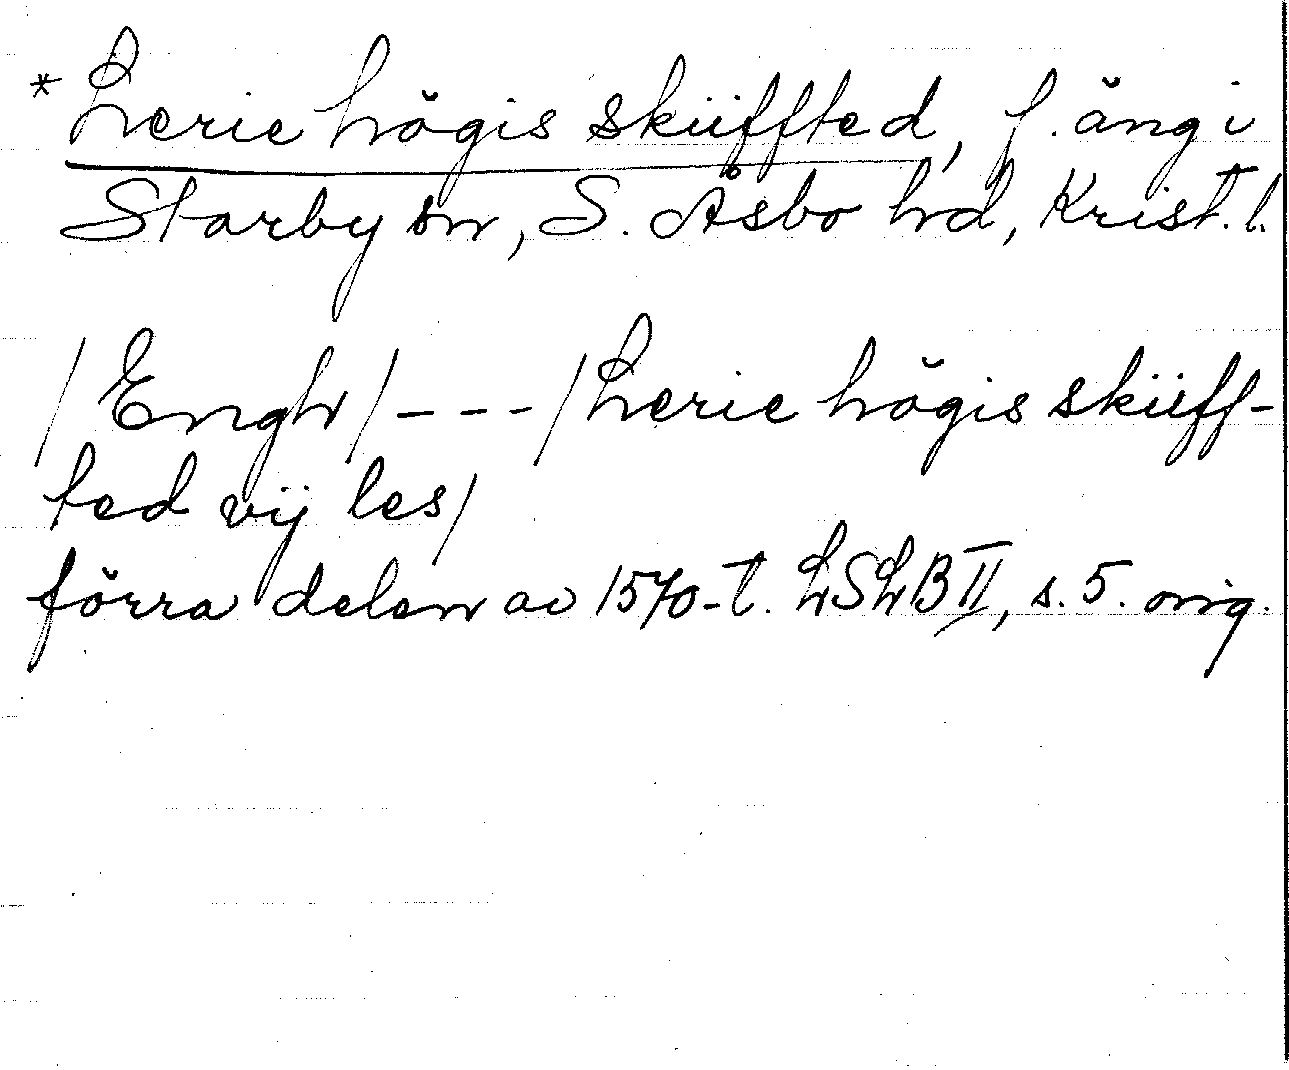 *Lerie högis sküffted, f. äng i
Starby sn, S. Åsbo hd, Krist. l.
/Engh/---/Lerie högis sküff-
ted vij les/
förra delen av 1570-t. LSLB II, s. 5. orig.